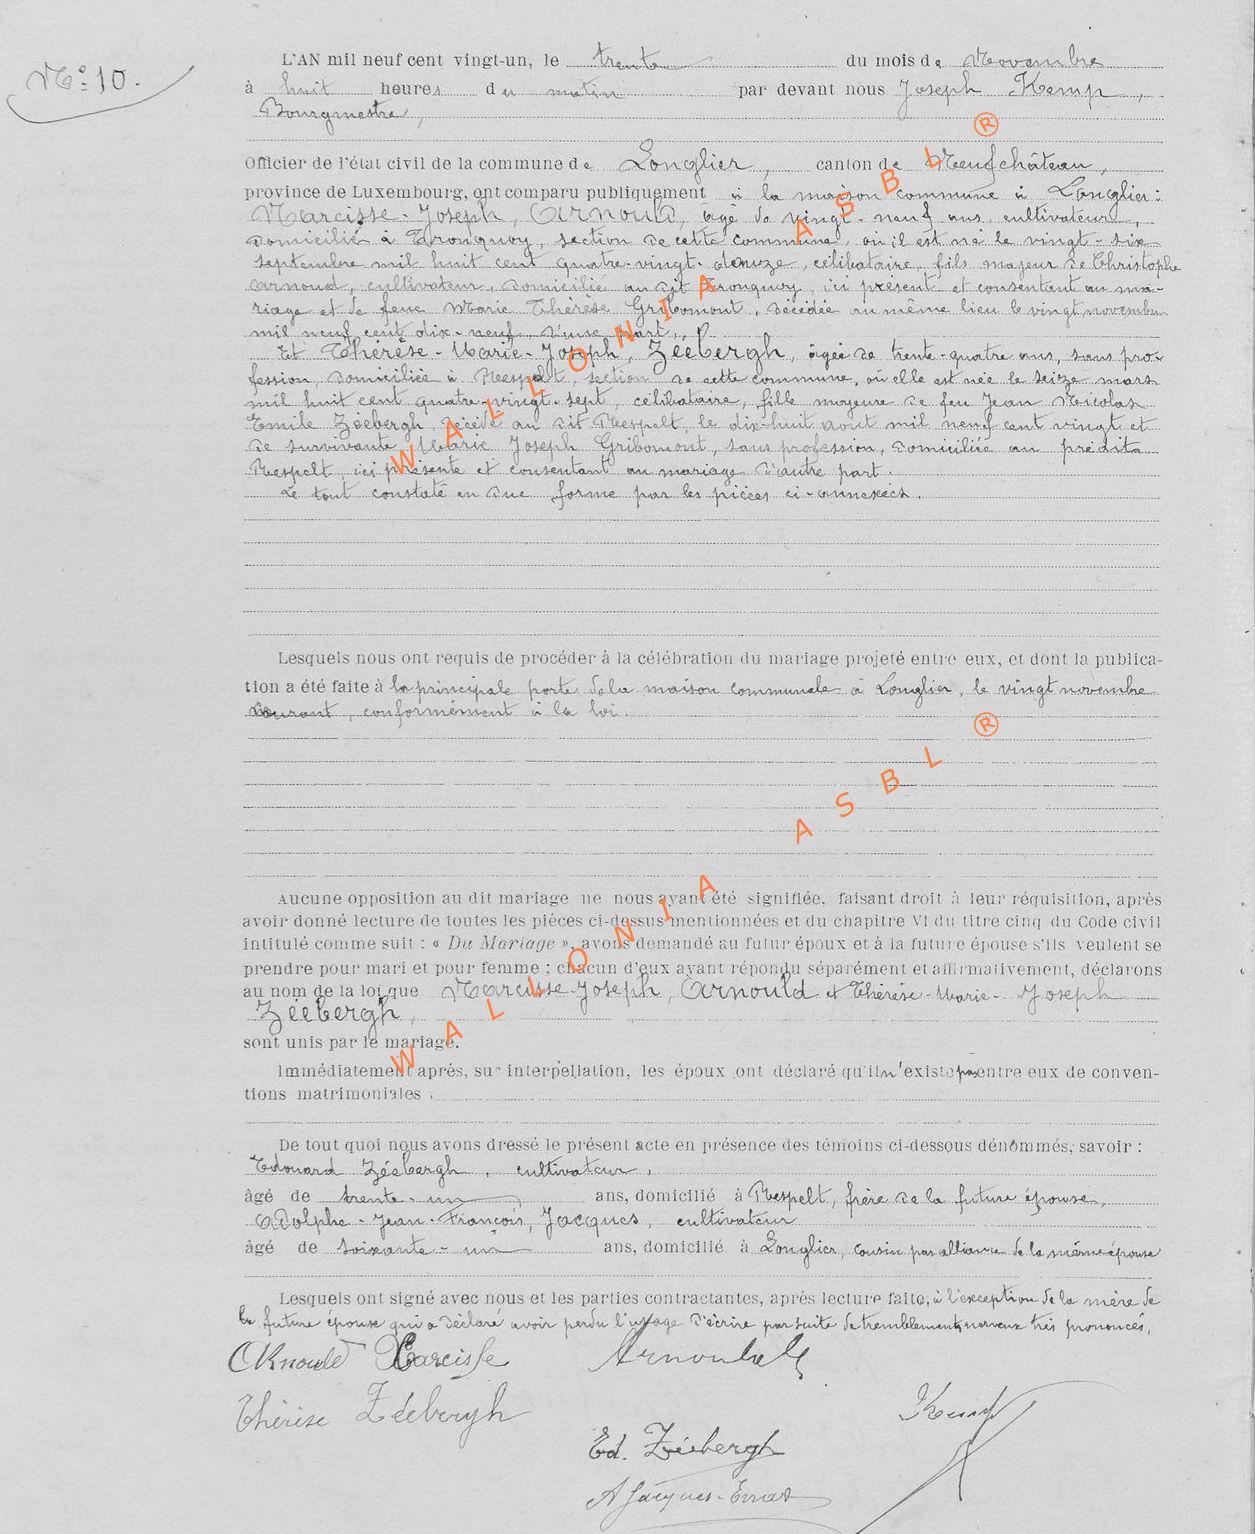 N° 10.
L'AN mil neuf cent vingt-un, le trente du mois de Novembre
à huit heures du matin par devant nous Joseph Kemp,
Bourgmestre,
Officier de l'état civil de la commune de Longlier, canton de Neufchâteau,
province de Luxembourg, ont comparu publiquement à la maison commune à Longlier:
Narcisse-Joseph, Arnould, âgé de vingt-neuf ans, cultivateur,
domicilié à Tronquoy, section de cette commune, où il est né le vingt-six
septembre mil huit cent quatre-vingt-douze, célibataire, fils majeur de Christophe
Arnould, cultivateur, domicilié au dit Tronquoy, ici présent et consentant au ma-
riage et de feue Marie Thérèse Gribomont, décédée au même lieu le vingt novembre
mil neuf cent dix-neuf, d'une part,
Et Thérèse-Marie-Joseph, Zéebergh, âgée de trente-quatre ans, sans pro-
fession, domiciliée à Respelt, section de cette commune, où elle est née le seize mars
mil huit cent quatre-vingt-sept, célibataire, fille majeure de feu Jean Nicolas
Emile Zéebergh, décédé au dit Respelt, le dix-huit août mil neuf cent vingt et
de survivante Marie Joseph Gribomont, sans profession, domiciliée au prédit
Respelt, ici présente et consentant au mariage d'autre part.
Le tout constaté en due forme par les pièces ci-annexées.
Lesquels nous ont requis de procéder à la célébration du mariage projeté entre eux, et dont la publica-
tion a été faite à la principale porte de la maison communale à Longlier, le vingt novembre
courant, conformément à la loi.
Aucune opposition au dit mariage ne nous ayant été signifiée, faisant droit à leur réquisition, après
avoir donné lecture de toutes les pièces ci-dessus mentionnées et du chapitre VI du titre cinq du Code civil
intitulé comme suit : « Du Mariage », avons demandé au futur époux et à la future épouse s'ils veulent se
prendre pour mari et pour femme ; chacun d'eux ayant répondu séparément et affirmativement, déclarons
au nom de la loi que Narcisse-Joseph, Arnould et Thérèse-Marie-Joseph
Zéebergh,
sont unis par le mariage.
Immédiatement après, sur interpellation, les époux ont déclaré qu'il n'existe pas entre eux de conven-
tions matrimoniales.
De tout quoi nous avons dressé le présent acte en présence des témoins ci-dessous dénommés, savoir :
Edouard Zéebergh, cultivateur,
âgé de trente-un ans, domicilié à Respelt, frère de la future épouse,
Adolphe-Jean-François, Jacques, cultivateur
âgé de soixante-un ans, domicilié à Longlier, cousin par alliance de la même épouse
Lesquels ont signé avec nous et les parties contractantes, après lecture faite, à l'exception de la mère de
la future épouse qui a déclaré avoir perdu l'usage d'écrire par suite de tremblements nerveux très prononcés,
Arnould Narcisse Arnould
Thérèse Zéebergh Kemp
Ed. Zéebergh
A Jacques-
WALLONIA ASBL ®
WALLONIA ASBL ®